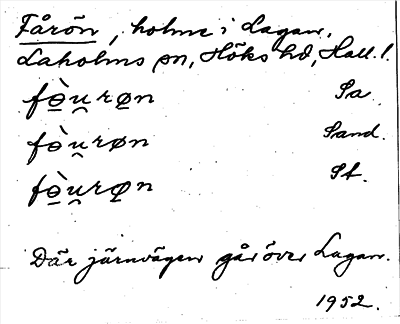 Fårön, holme i Lagan,
Laholms sn, Höks hd, Hall. l.
fò̤u̯røn Sa
fò̤u̯røn Sand.
fò̤u̯røn St.
Där järnvägen går över Lagan.
1952.